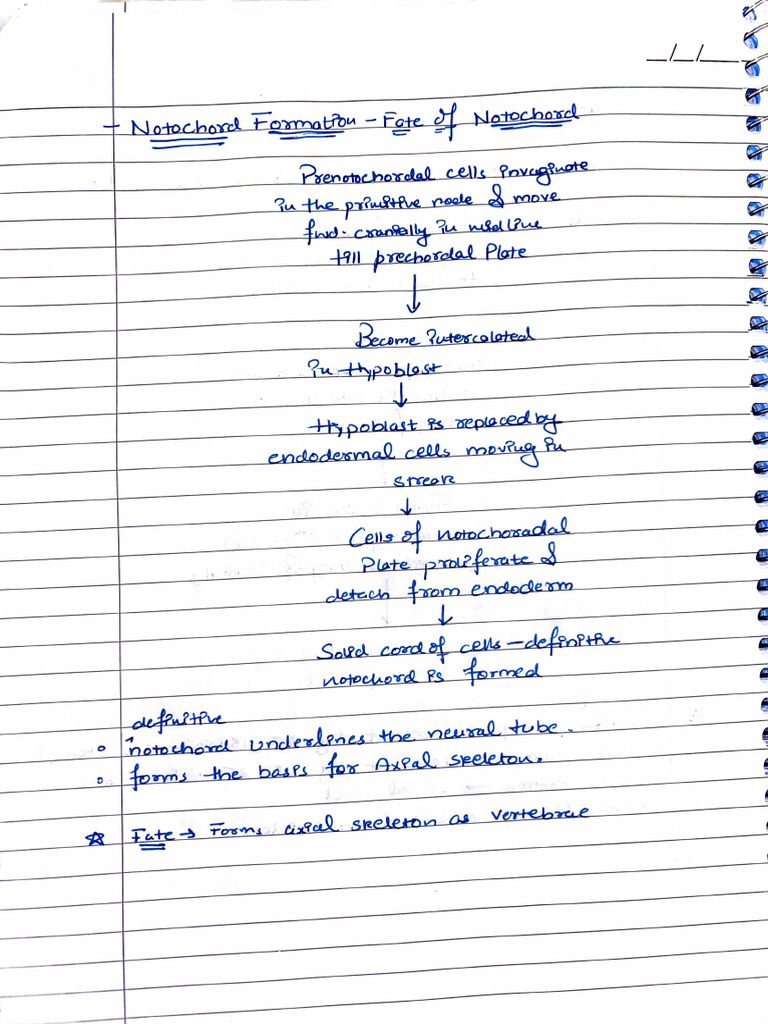 _/_/_
- Notochord Formation - Fate of Notochord
Prenotochordal cells invaginate
in the primitive node & move
fwd. cranially in midline
till prechordal Plate
↓
Become intercalated
in Hypoblast
↓
Hypoblast is replaced by
endodermal cells moving in
streak
↓
Cells of notochoradal
Plate proliferate &
detach from endoderm
↓
Solid cord of cells - definitive
notochord is formed
definitive
◦ notochord underlines the neural tube.
◦ forms the basis for Axial skeleton.
☆ Fate → Forms axial skeleton as vertebrae